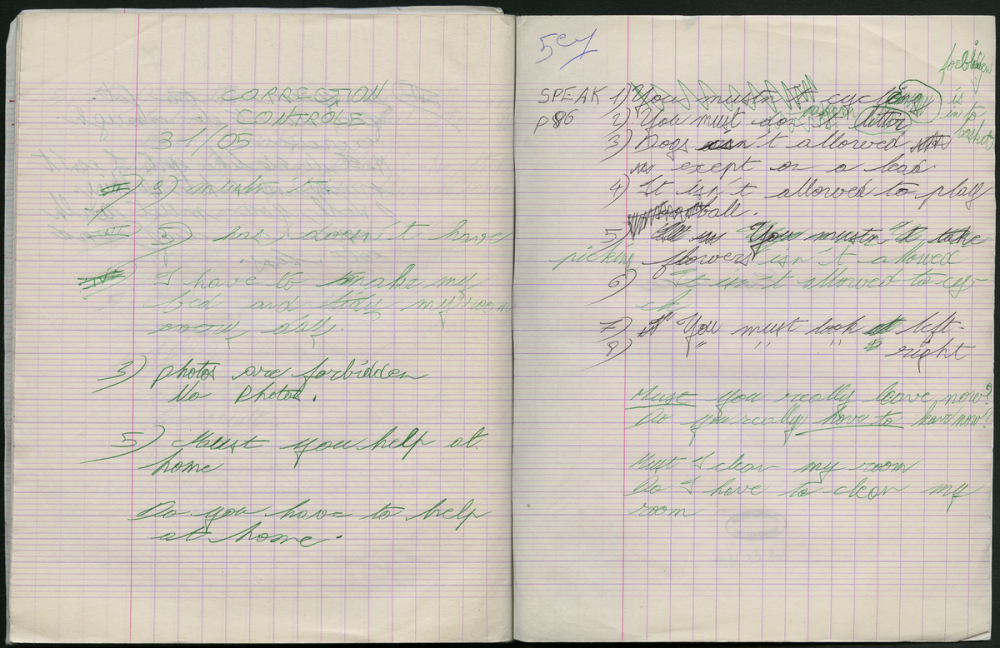 CORRECTION
CONTRÔLE
31/05
II 2) mustn't.
III 5) doesn't have
IV I have to make my
bed and tidy my room
every day.
3) photos are forbidden
No photos.
5) Must you help at
home
Do you have to help
at home.
5ey
forbidden
SPEAK 1) You mustn't cycling is
p 86 2) You must litter in
3) Dogs isn't allowed
exept on a lead
4) It isn't allowed to play
ball.
5) You mustn't take
picking flowers isn't allowed
6) It isn't allowed to cy-
7) You must look at left-
8) " " " right
Must you really leave now?
Do you really have to leave now?
Must I clean my room
Do I have to clean my
room